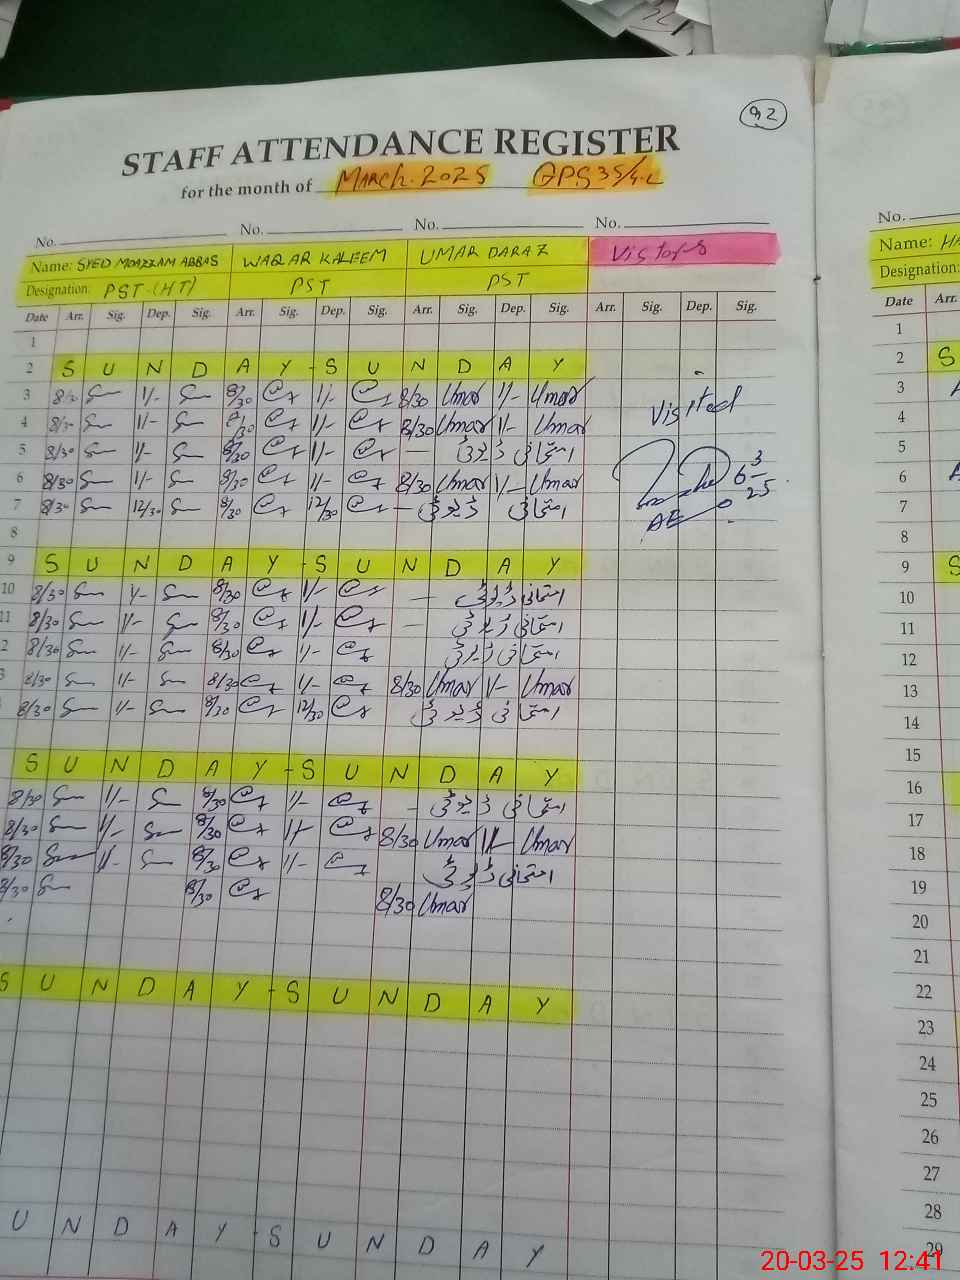 92
STAFF ATTENDANCE REGISTER
for the month of March. 2025 GPS 35/4-L
No. No. No. No.
Name: SYED MOAZZAM ABBAS WAQAR KALEEM UMAR DARAZ Visitors
Designation: PST-(HT) PST PST
Date Arr. Sig. Dep. Sig. Arr. Sig. Dep. Sig. Arr. Sig. Dep. Sig. Arr. Sig. Dep. Sig.
1
2 S U N D A Y - S U N D A Y
3 8/30 1/- 8/30 1/- 8/30 Umar 1/- Umar
4 8/30 1/- 8/30 1/- 8/30 Umar 1/- Umar Visited
5 8/30 1/- 8/30 1/- — امتحانی ڈیوٹی
6 8/30 1/- 8/30 1/- 8/30 Umar 1/- Umar 6 3/25
7 8/30 12/30 8/30 12/30 — امتحانی ڈیوٹی AE
8
9 S U N D A Y - S U N D A Y
10 8/30 1/- 8/30 1/- — امتحانی ڈیوٹی
11 8/30 1/- 8/30 1/- — امتحانی ڈیوٹی
2 8/30 1/- 8/30 1/- امتحانی ڈیوٹی
3 8/30 1/- 8/30 1/- 8/30 Umar 1/- Umar
8/30 1/- 8/30 12/30 امتحانی ڈیوٹی
S U N D A Y - S U N D A Y
8/30 1/- 8/30 1/- — امتحانی ڈیوٹی
8/30 1/- 8/30 1/- 8/30 Umar 1/- Umar
8/30 1/- 8/30 1/- امتحانی ڈیوٹی
8/30 8/30 8/30 Umar
S U N D A Y - S U N D A Y
U N D A Y - S U N D A Y
No.
Name: HA
Designation:
Date Arr.
1
2 S
3
4
5
6
7
8
9 S
10
11
12
13
14
15
16
17
18
19
20
21
22
23
24
25
26
27
28
29
20-03-25 12:41